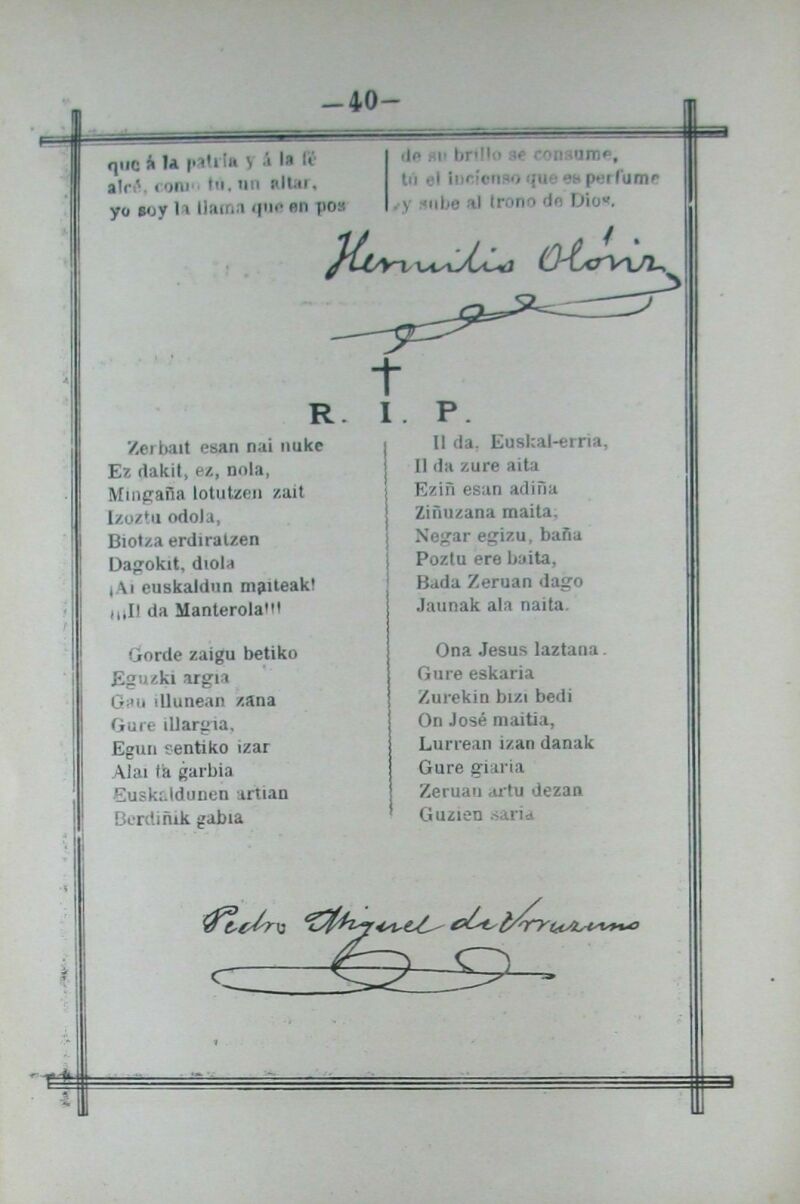 —40—
que á la patria y á la fé
alcé, como tú, un altar,
yo soy la llama que en pos
de su brillo se consume,
tú el incienso que es perfume
y sube al trono de Dios.
Hermilio Olóriz
†
R. I. P.
Zerbait esan nai nuke
Ez dakit, ez, nola,
Mingaña lotutzen zait
Izoztu odola,
Biotza erdiratzen
Dagokit, diola
¡Ai euskaldun maiteak!
¡¡¡Il da Manterola!!!
Gorde zaigu betiko
Eguzki argia
Gau illunean zana
Gure illargia,
Egun sentiko izar
Alai ta garbia
Euskaldunen artian
Berdiñik gabia
Il da, Euskal-erria,
Il da zure aita
Eziñ esan adiña
Ziñuzana maita;
Negar egizu, baña
Poztu ere baita,
Bada Zeruan dago
Jaunak ala naita.
Ona Jesus laztana.
Gure eskaria
Zurekin bizi bedi
On José maitia,
Lurrean izan danak
Gure giaria
Zeruan artu dezan
Guzien saria
Pedro Miguel de Urruzuno